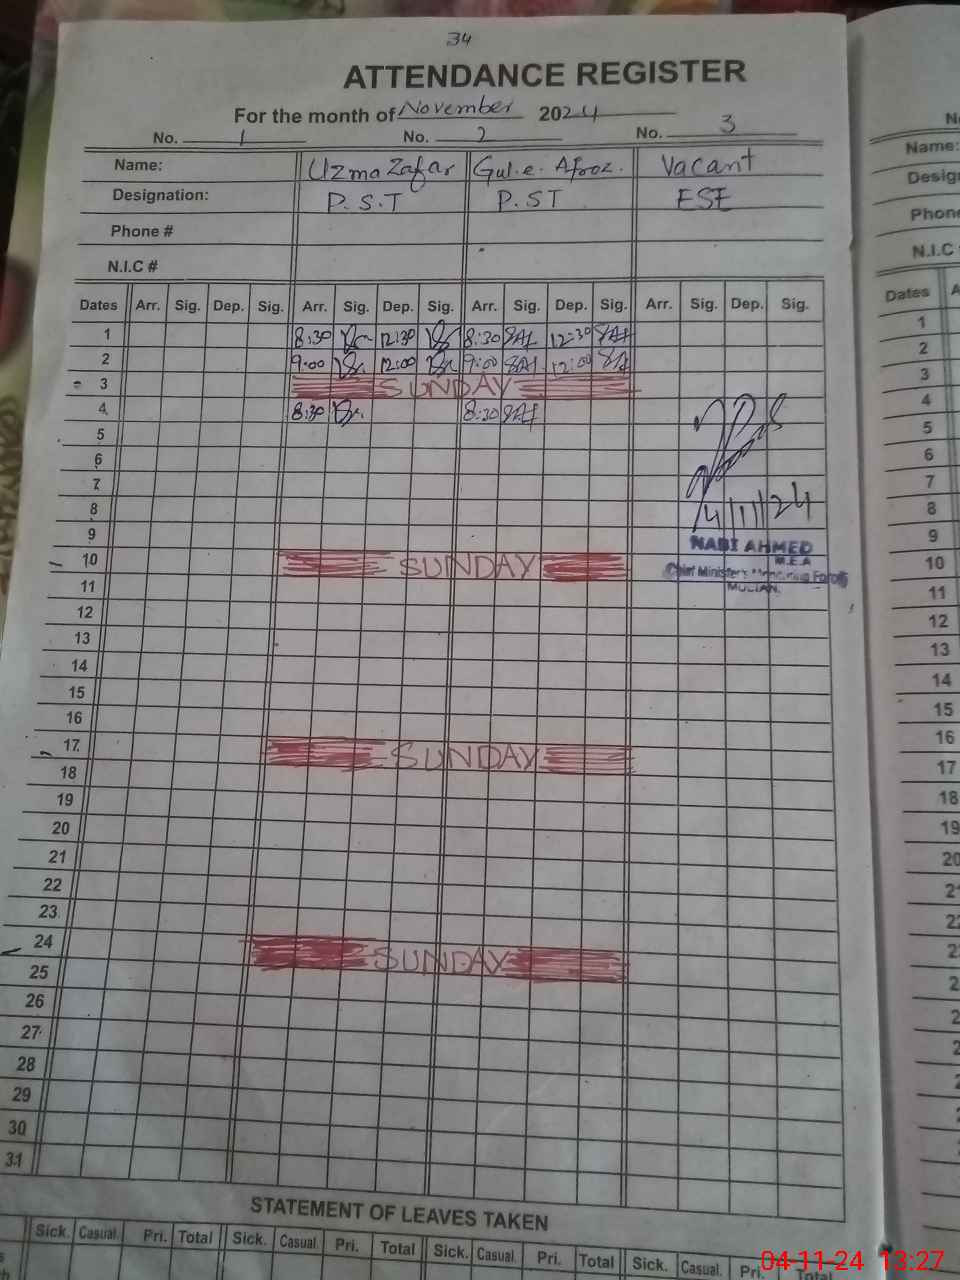 34
ATTENDANCE REGISTER
For the month of November 2024
No. 1 No. 2 No. 3
Name: Uzma Zafar Gul.e.Afroz. Vacant
Designation: P.S.T P.ST ESE
Phone #
N.I.C #
Dates Arr. Sig. Dep. Sig. Arr. Sig. Dep. Sig. Arr. Sig. Dep. Sig. Arr. Sig. Dep. Sig.
1 8:30 12:30 8:30 12:30
2 9:00 12:00 9:00 12:00
3 SUNDAY
4 8:30 8:30
5
6
7
8
4/11/24
9
NABI AHMED
M.E.A
10 SUNDAY
Chief Minister's Monitoring Force
MULTAN.
11
12
13
14
15
16
17 SUNDAY
18
19
20
21
22
23
24 SUNDAY
25
26
27
28
29
30
31
STATEMENT OF LEAVES TAKEN
Sick. Casual. Pri. Total Sick. Casual. Pri. Total Sick. Casual. Pri. Total Sick. Casual. Pri. Total
Name:
Phone
N.I.C
Dates
1
2
3
4
5
6
7
8
9
10
11
12
13
14
15
16
17
18
19
20
04-11-24 13:27